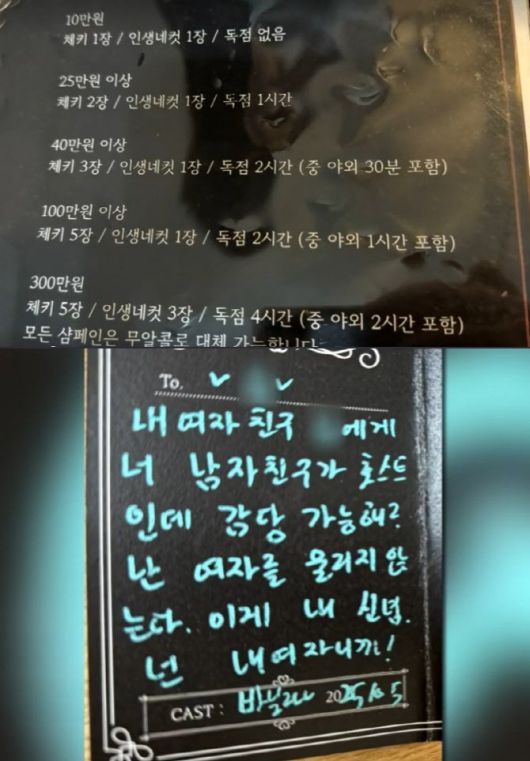 10만원
체키 1장 / 인생네컷 1장 / 독점 없음
25만원 이상
체키 2장 / 인생네컷 1장 / 독점 1시간
40만원 이상
체키 3장 / 인생네컷 1장 / 독점 2시간 (중 야외 30분 포함)
100만원 이상
체키 5장 / 인생네컷 1장 / 독점 2시간 (중 야외 1시간 포함)
300만원
체키 5장 / 인생네컷 3장 / 독점 4시간 (중 야외 2시간 포함)
모든 샴페인은 무알콜로 대체 가능합니다
To.
내 여자친구 에게
너 남자친구가 호스트
인데 감당 가능해?
난 여자를 울리지 않
는다. 이게 내 신념.
넌 내여자니까!
CAST : 2025 10 5